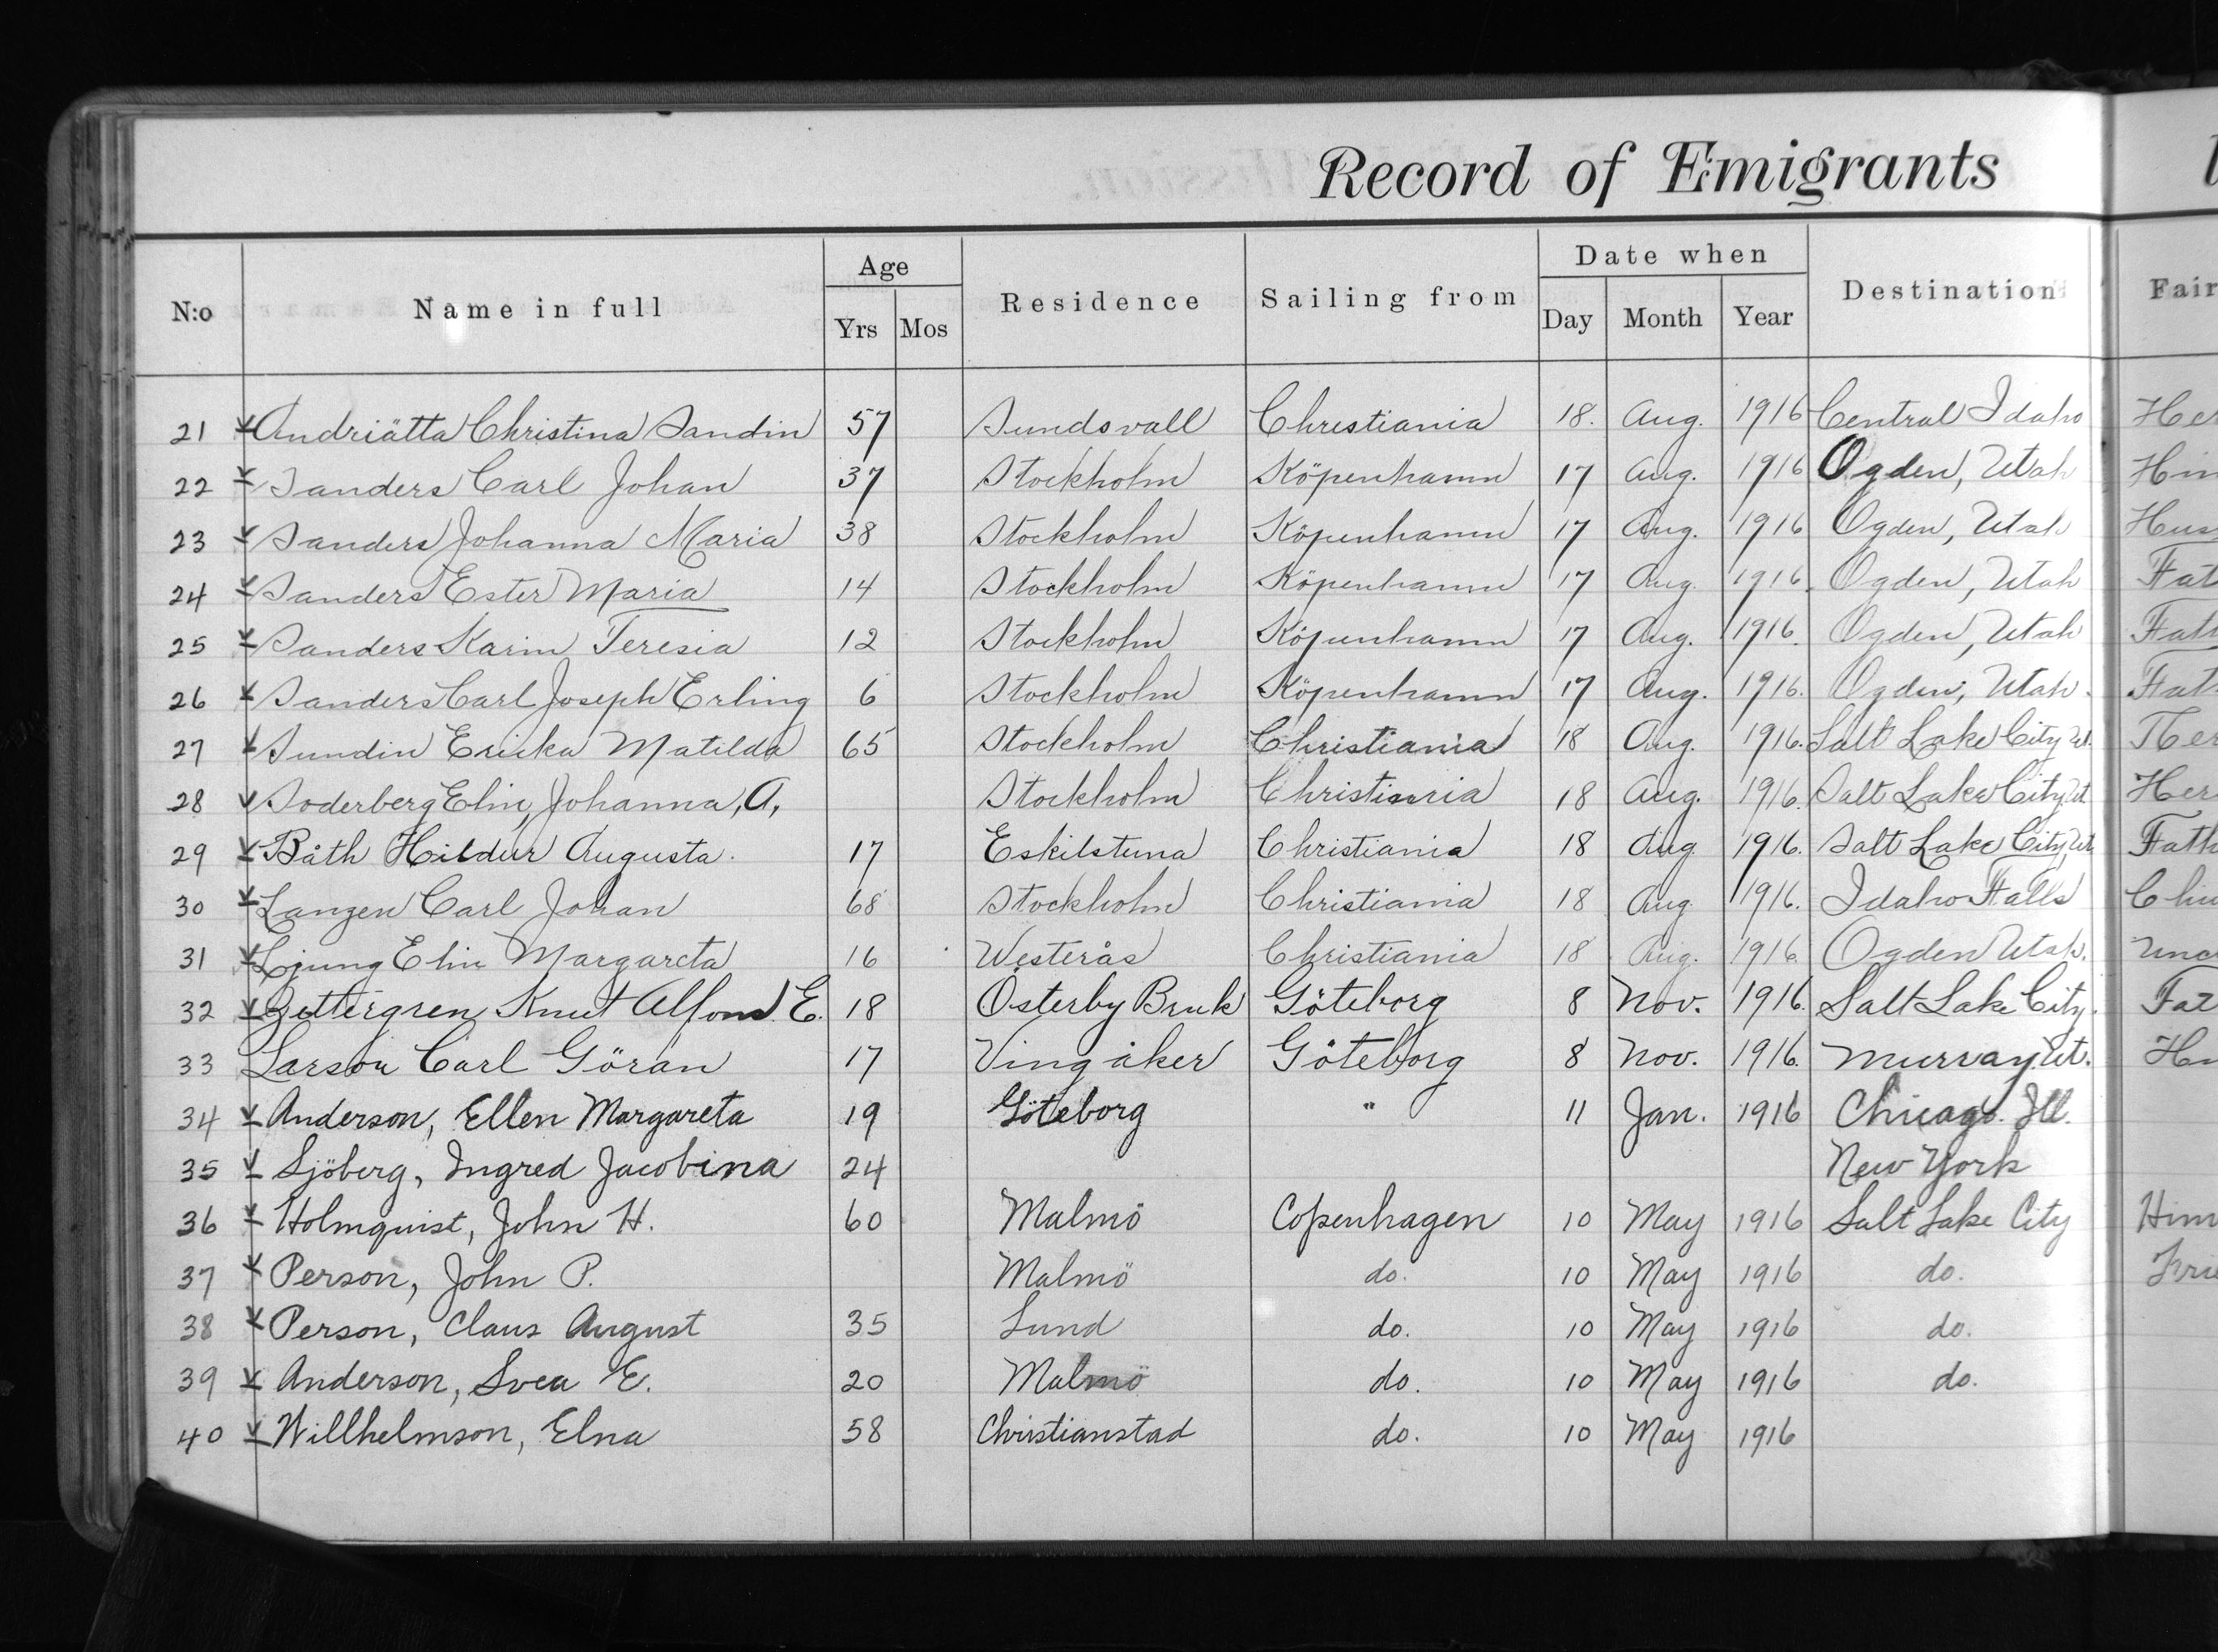 Record of Emigrants
N:o Name in full Age Yrs Mos Residence Sailing from Date when Day Month Year Destination Fair
21 Andriätta Christina Sandin 57 Sundsvall Christiania 18. Aug. 1916 Central Idaho Her
22 Sanders Carl Johan 37 Stockholm Köpenhamn 17 Aug. 1916 Ogden, Utah Him
23 Sanders Johanna Maria 38 Stockholm Köpenhamn 17 Aug. 1916 Ogden, Utah Hus
24 Sanders Ester Maria 14 Stockholm Köpenhamn 17 Aug. 1916. Ogden, Utah Fat
25 Sanders Karin Teresia 12 Stockholm Köpenhamn 17 Aug. 1916. Ogden, Utah Fath
26 Sanders Carl Joseph Erling 6 Stockholm Köpenhamn 17 Aug. 1916. Ogden, Utah. Fat
27 Sundin Ericka Matilda 65 Stockholm Christiania 18 Aug. 1916. Salt Lake City Ut.
28 Soderberg Elin, Johanna, A, Stockholm Christiania 18 Aug. 1916. Salt Lake City, Ut Her
29 Båth Hildur Augusta. 17 Eskilstuna Christiania 18 Aug. 1916. Salt Lake City, Ut. Fath
30 Langen Carl Johan 68 Stockholm Christiania 18 Aug 1916. Idaho Falls
31 Ljung Elin Margareta 16 Westerås Christiania 18 Aug. 1916. Ogden Utah. Unc
32 Zettergren Knut Alfons E. 18 Österby Bruk Göteborg 8 Nov. 1916. Salt Lake City. Fat
33 Larson Carl Göran 17 Vingåker Göteborg 8 Nov. 1916. Murray, Ut.
34 Anderson, Ellen Margareta 19 Göteborg " 11 Jan. 1916 Chicago. Ill.
35 Sjöberg, Ingred Jacobina 24 New York
36 Holmquist, John H. 60 Malmö Copenhagen 10 May 1916 Salt Lake City Him
37 Person, John P. Malmö do. 10 May 1916 do. Frie
38 Person, Claus August 35 Lund do. 10 May 1916 do.
39 Anderson, Svea E. 20 Malmö do. 10 May 1916 do.
40 Willhelmson, Elna 58 Christianstad do. 10 May 1916